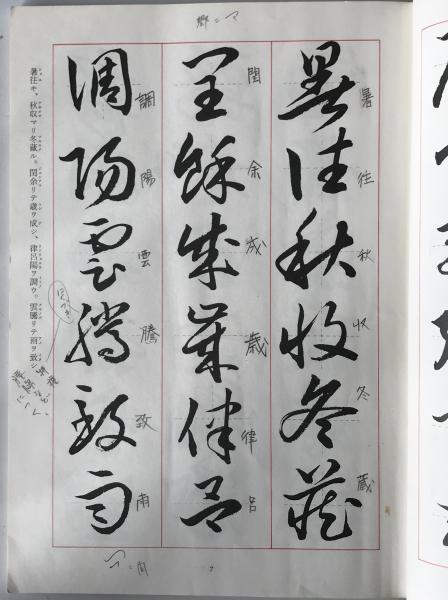 暑往秋収冬蔵
暑往秋収冬蔵
閏餘成歳律呂
閏余成歳律呂
調陽雲騰致雨
調陽雲騰致雨
暑往キ、秋収マリ冬蔵ル。閏余リテ歳ヲ成シ、律呂陽ヲ調ウ。雲騰リテ雨ヲ致シ